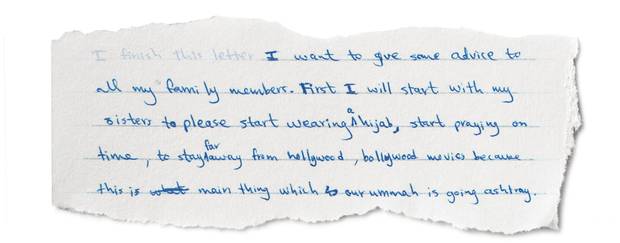 I finish this letter I want to give some advice to
all my family members. First I will start with my
sisters to please start wearing a hijab, start praying on
time, to stay far away from hollywood, bollywood movies because
this is what main thing which is our ummah is going ashtray.